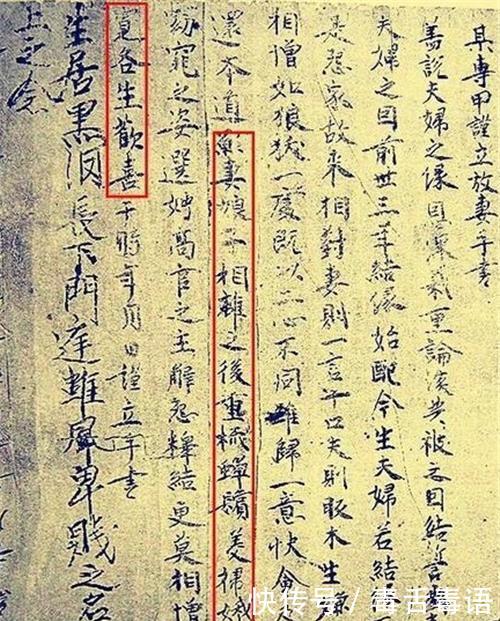 某專甲謹立放妻手書
盖說夫婦之緣恩深義重論談共被之因結誓
夫婦之因前世三年結緣始配今生夫婦若結
是怨家故來相對妻則一言十口夫則木生嫌
相憎如狼一處既以二心不同難歸一意快會
還本道願妻娘子相離之後重梳蟬鬢美掃娥
窈窕之姿選娉高官之主解怨釋結更莫相憎
各生歡喜于時年月日謹立手書
生居黑長下門庭雖卑賤之名
之念
快传号 / 毒舌毒语